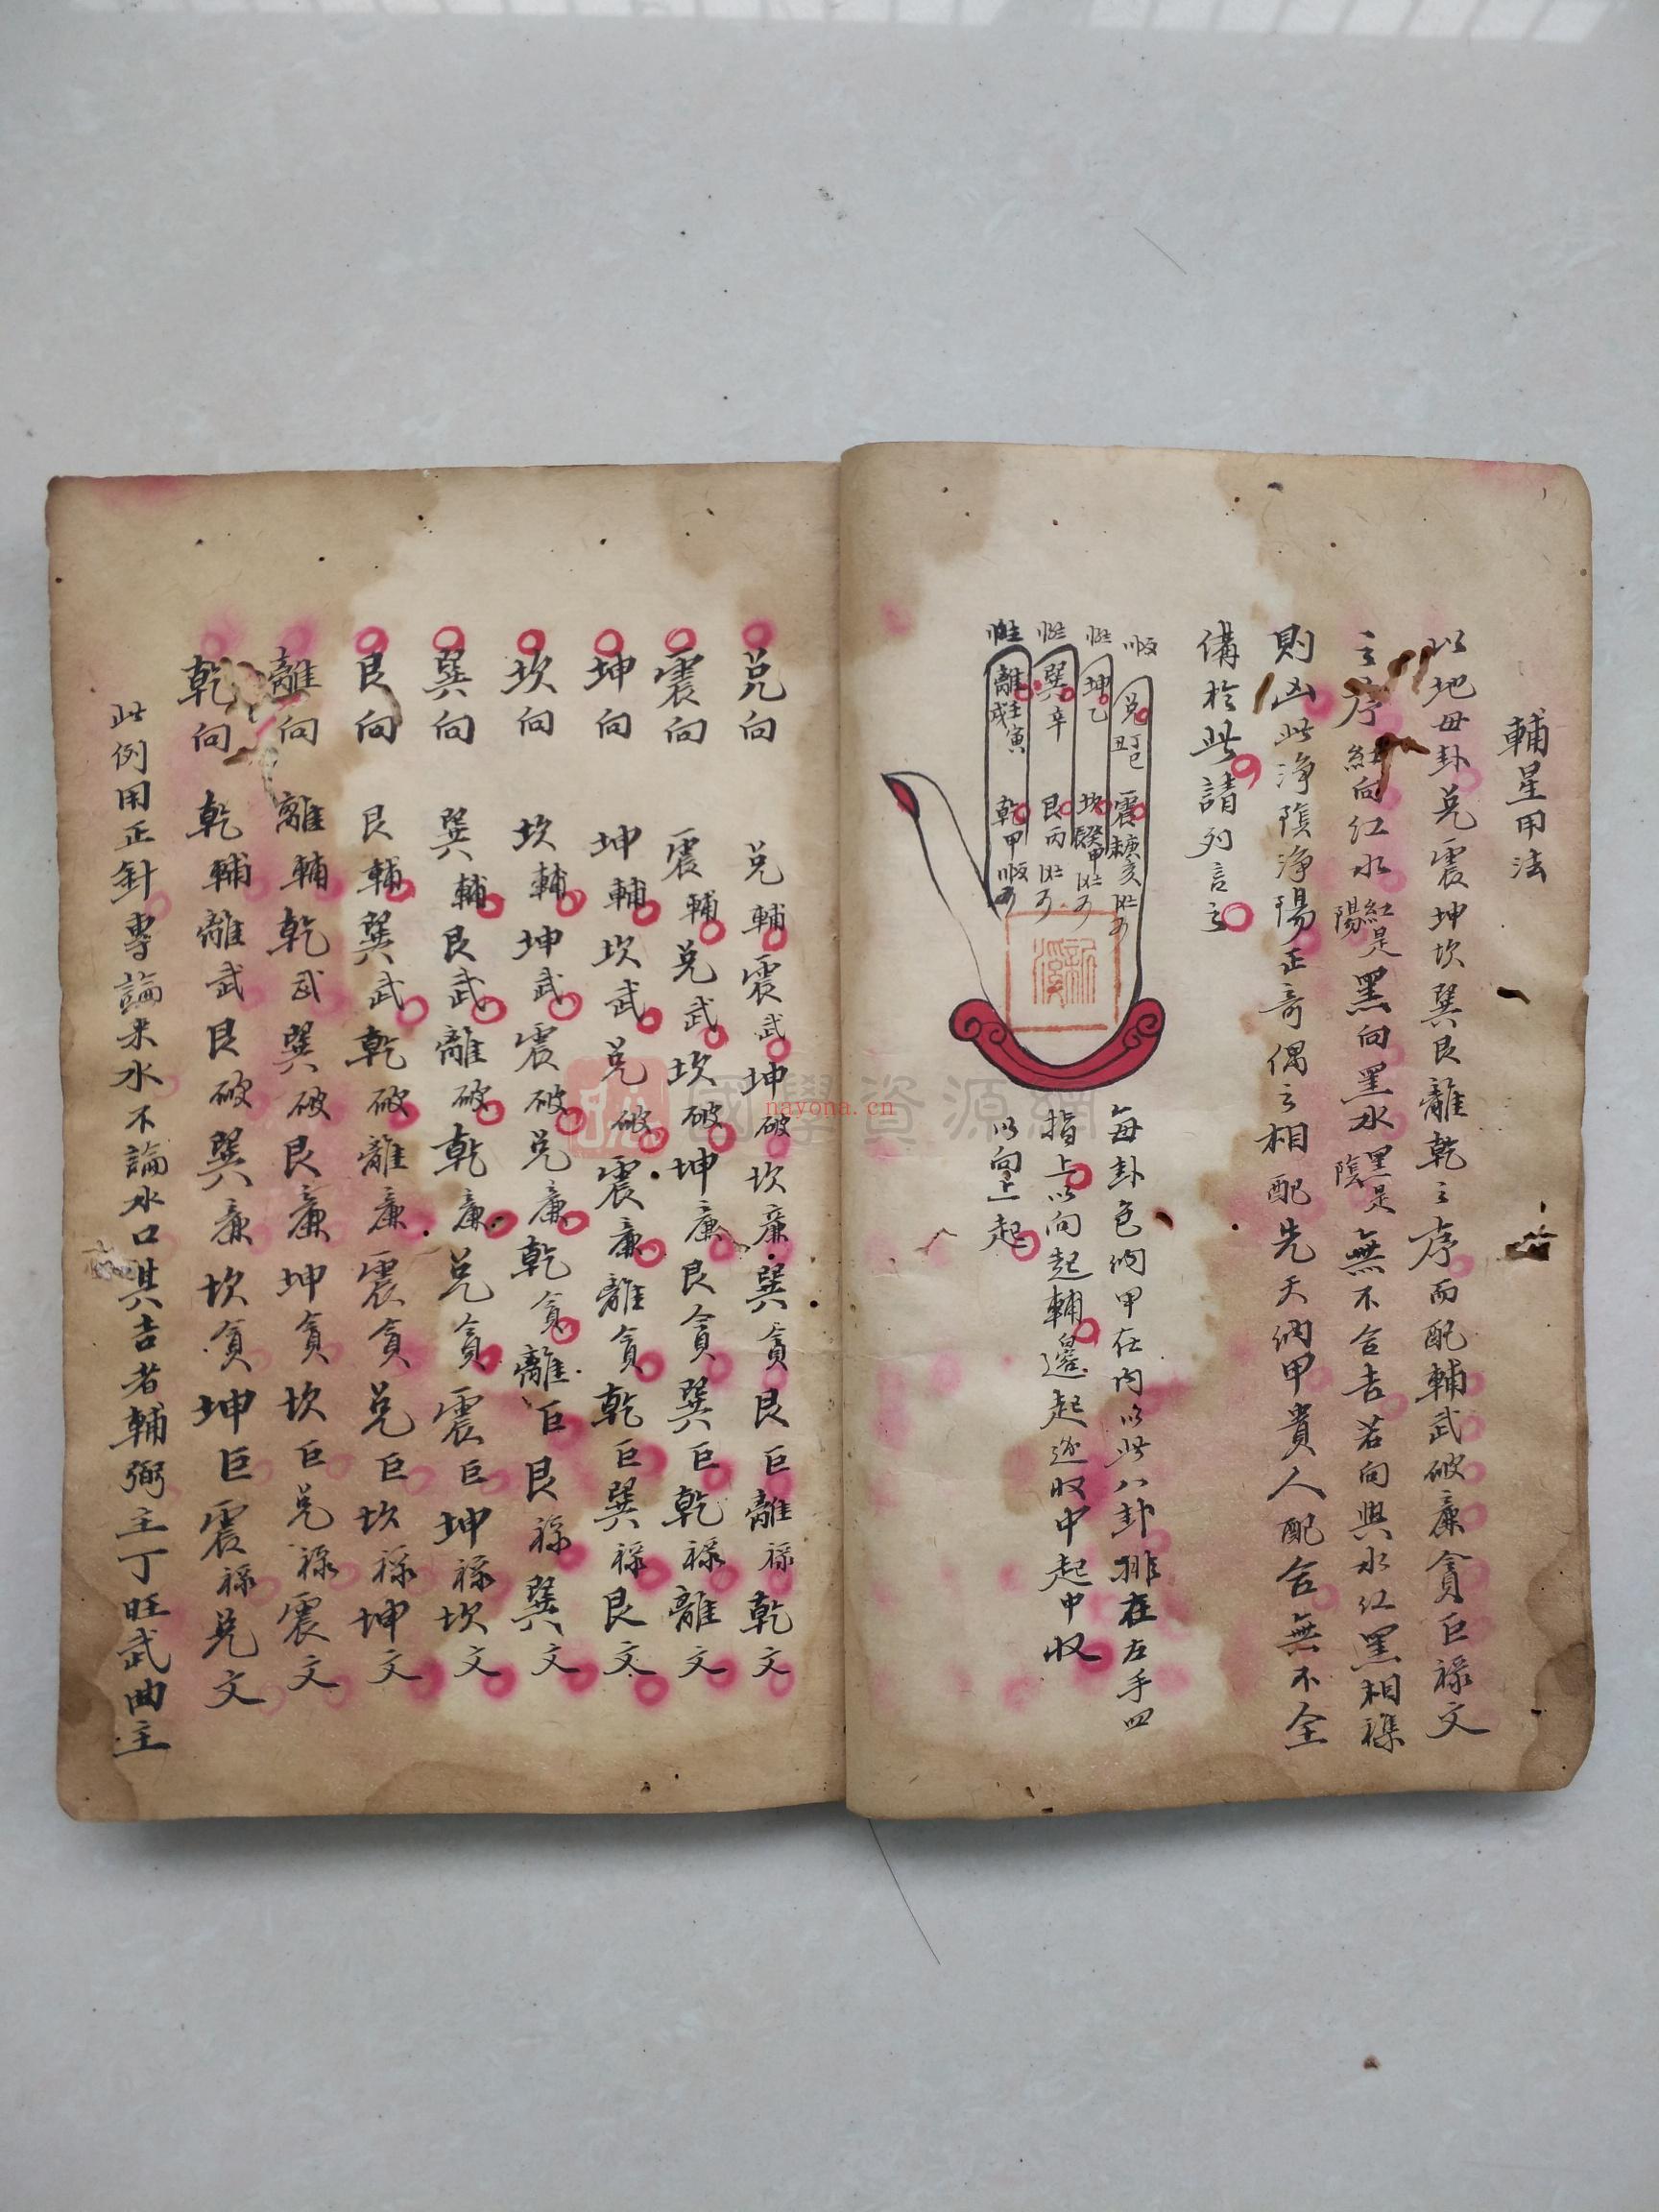 輔星用法
以地母卦兌震坤坎巽艮離乾之序而配輔武破廉貪巨祿文
之序紅向紅水紅是陽黑向黑水黑是陰無不合吉若向與水紅黑相襍
則凶此淨陰淨陽正奇偶之相配先天納甲貴人配合無不全
俻於此請列言之
順
兌丁巳丑
震庚亥未
坤乙
坎癸申辰
巽辛
艮丙
離壬寅戌
乾甲
每卦包納甲在內以此八卦排在左手四
指上以向起輔邊起逆收中起中收
以向上起
兌向 兌輔震武坤破坎廉巽貪艮巨離祿乾文
震向 震輔兌武坎破坤廉艮貪巽巨乾祿離文
坤向 坤輔坎武兌破震廉離貪乾巨巽祿艮文
坎向 坎輔坤武震破兌廉乾貪離巨艮祿巽文
巽向 巽輔艮武離破乾廉兌貪震巨坤祿坎文
艮向 艮輔巽武乾破離廉震貪兌巨坎祿坤文
離向 離輔乾武巽破艮廉坤貪坎巨兌祿震文
乾向 乾輔離武艮破巽廉坎貪坤巨震祿兌文
此例用正針專論來水不論水口其吉者輔弼主丁旺武曲主
國學資源網
nayona.cn